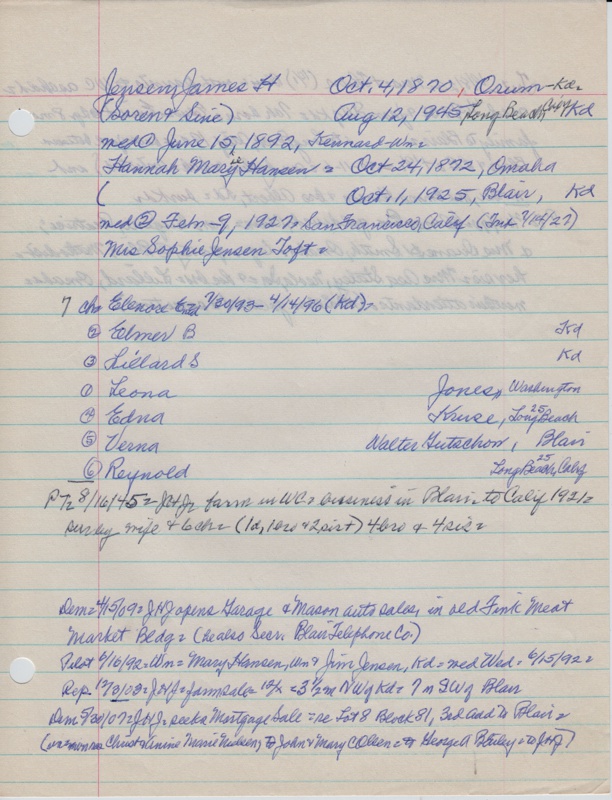 Jensen, James H Oct. 4, 1870, Orum - Kd.
(Soren & Sine) Aug 12, 1945, Long Beach, Calif Kd
med ① June 15, 1892, Kennard - Wn =
Hannah Marie Hansen = Oct 24, 1872, Omaha
( Oct. 1, 1925, Blair, Kd
med ② Febr - 9, 1927, San Francisco, Calif (Ind 7/14/27)
Mrs Sophie Jensen Toft =
7 ch Elenore 7/30/93 - 4/14/96 (Kd) -
② Elmer B Kd
③ Lillard S Kd
① Leona Jones, Washington
④ Edna Kruse, Long Beach 25
⑤ Verna Walter Gutschow, Blair
⑥ Reynold Long Beach, Calif 25
PT 8/16/45 = JHJ farm in WC > business in Blair - to Calif 1921 =
surv by wife & 6 ch = (1d, 1 bro & 2 sist) 4 bro & 4 sis =
Dem = 4/15/09 = JHJ opens Garage & Mason auto sales, in old Fink Meat
Market Bldg = (he also Secr. Blair Telephone Co.)
Pilot 6/16/92 = Wn = Mary Hansen, Wn & Jim Jensen, Kd = med Wed = 6/15/92 =
Rep. 12/3/03 = JHJ = farm sale = = 3 1/2 m NW of Kd = 7 m SW of Blair
Dem 5/30/07 = JHJ seeks Mortgage Sale = re Lot 8 Block 81, 3rd add to Blair =
( Christ & Anine Marie Nielsen, to John & Mary C Olsen = to George A = to JHJ)